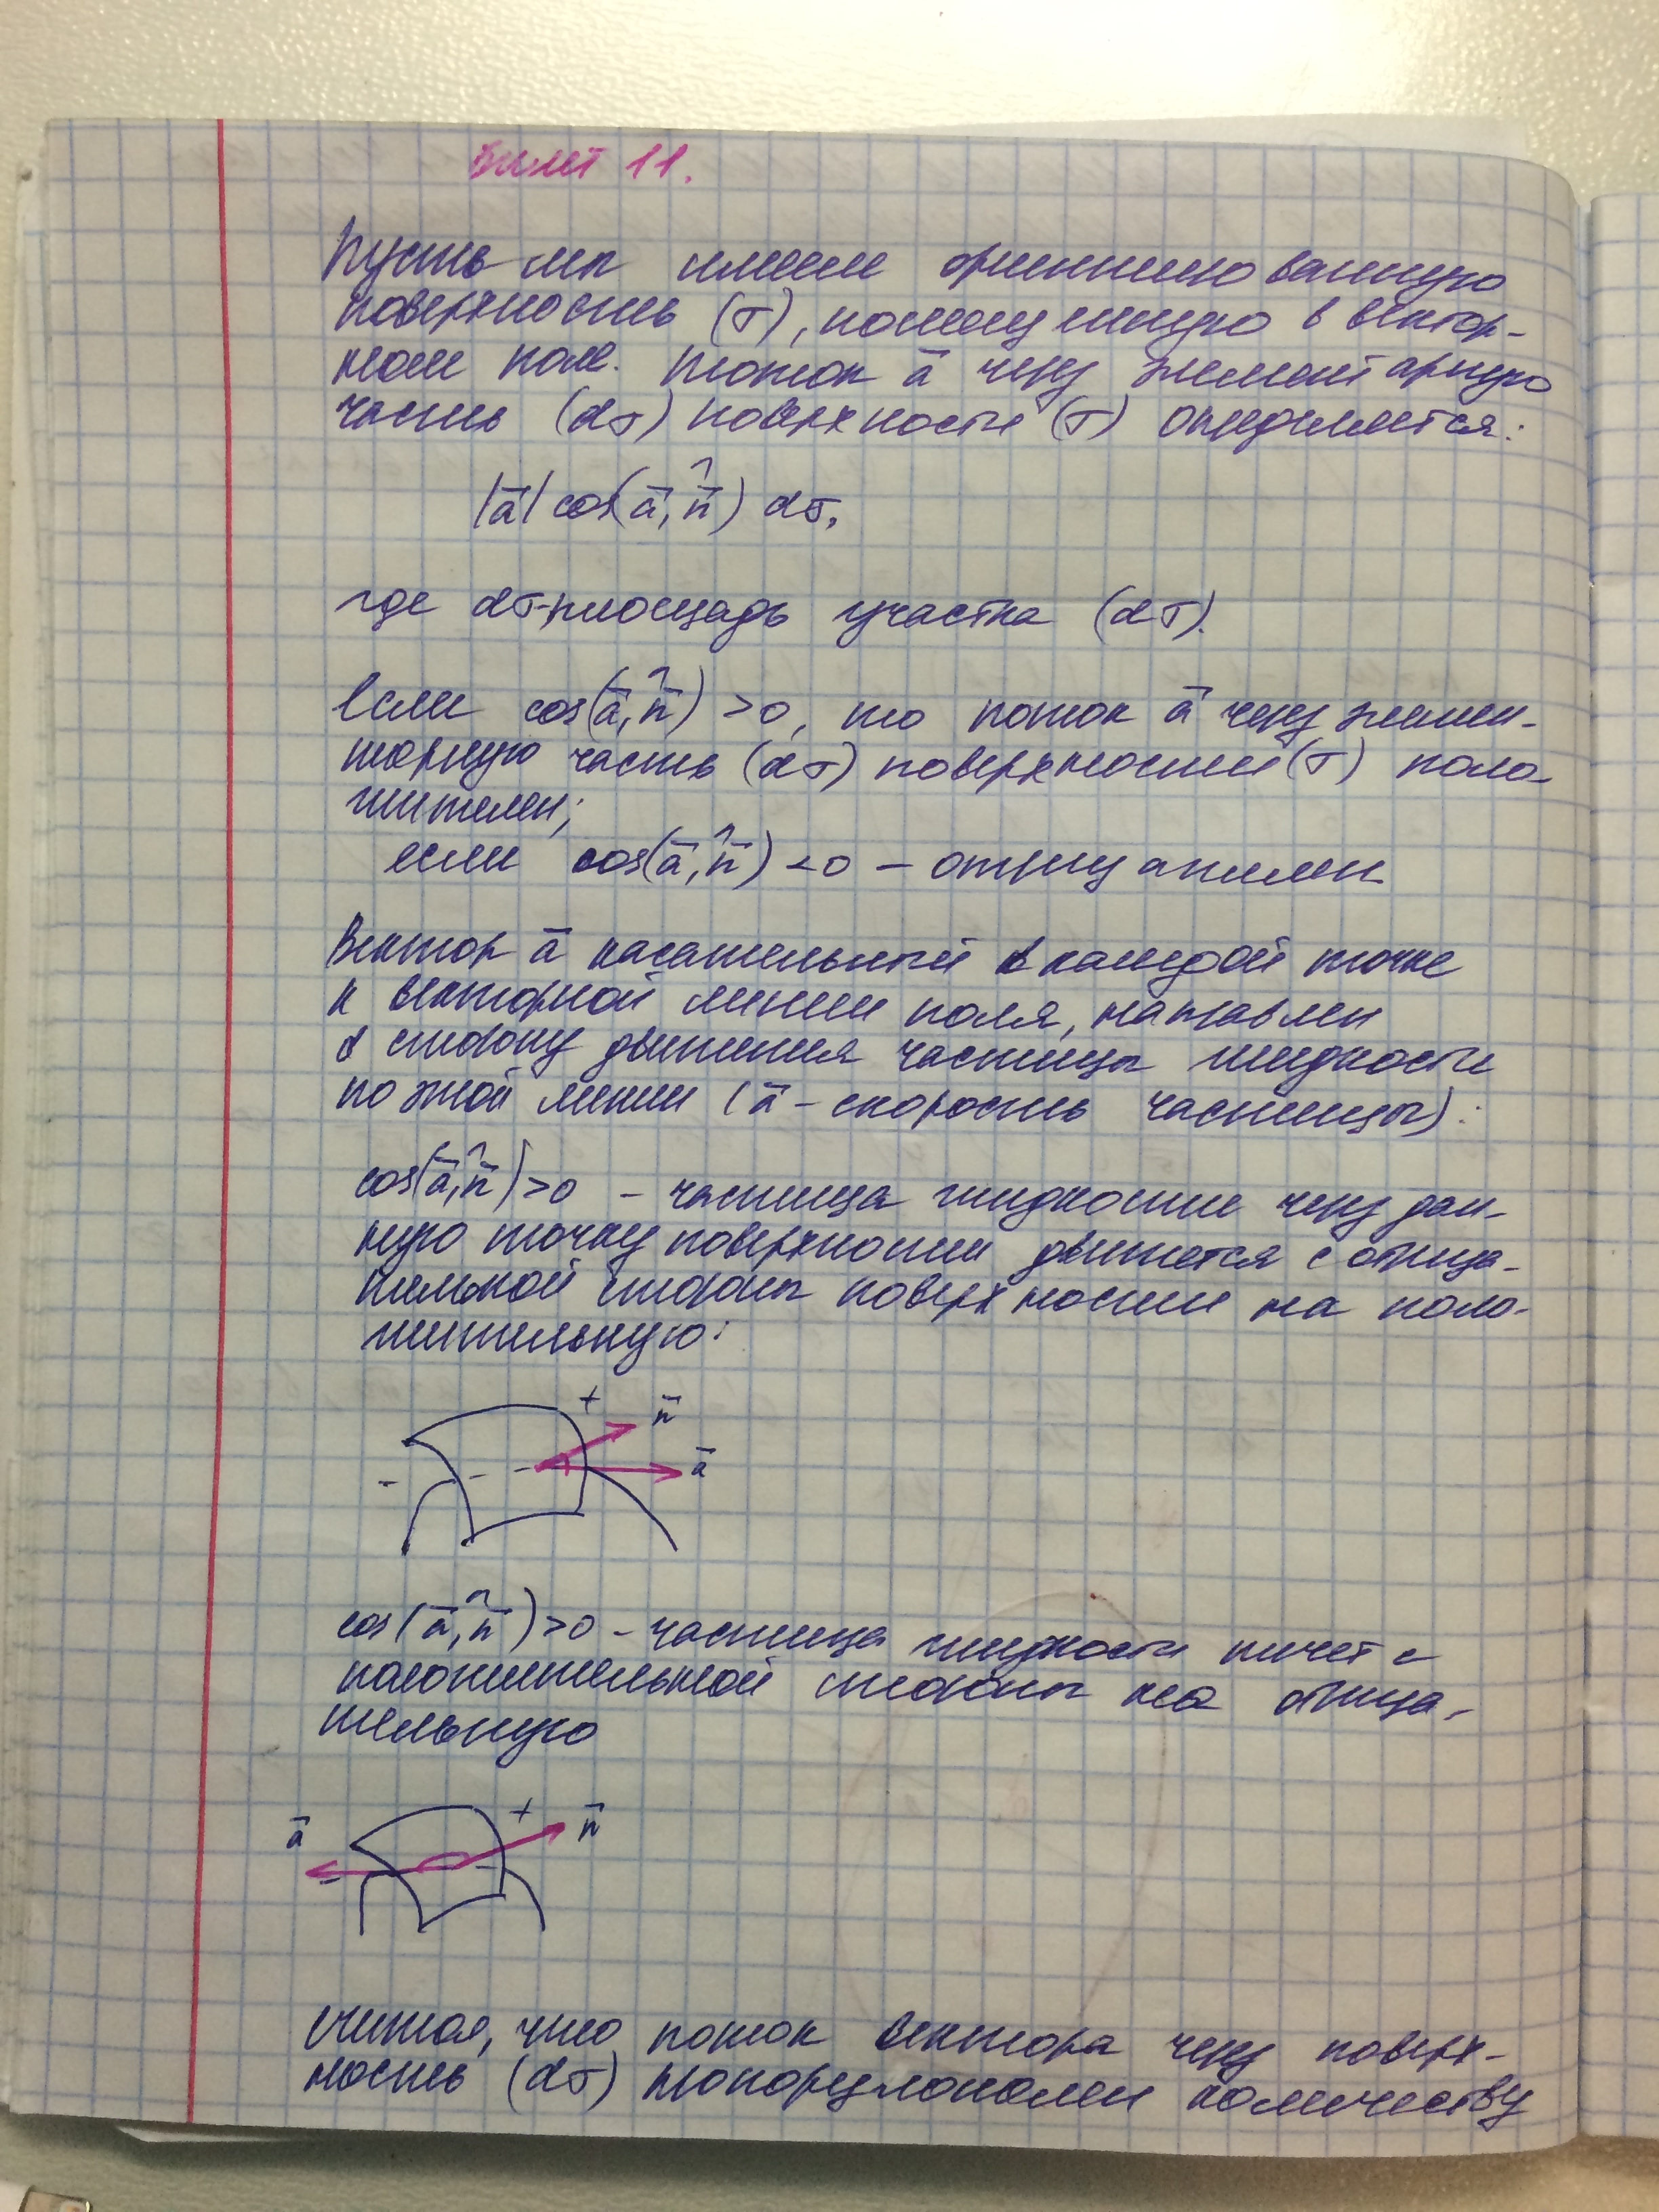 Билет 11.
Пусть мы имеем ориентированную
поверхность (σ), помещенную в вектор-
ном поле. Поток a̅ через элементарную
часть (dσ) поверхности (σ) определяется:
|a̅| cos(a̅,^n̅) dσ,
где dσ-площадь участка (dσ).
Если cos(a̅,^n̅) >0, то поток a̅ через элемен-
тарную часть (dσ) поверхности (σ) поло-
жителен;
если cos(a̅,^n̅) <0 – отрицателен
Вектор a̅ касательный в каждой точке
к векторной линии поля, направлен
в сторону движения частицы жидкости
по этой линии (a̅ – скорость частицы):
cos(a̅,^n̅)>0 – частица жидкости через дан-
ную точку поверхности движется с отрица-
тельной стороны поверхности на поло-
жительную:
+ n̅
– a̅
cos(a̅,^n̅)>0 – частица жидкости течет с
положительной стороны на отрица-
тельную
a̅ + n̅
–
Считая, что поток вектора через поверх-
ность (dσ) пропорционален количеству